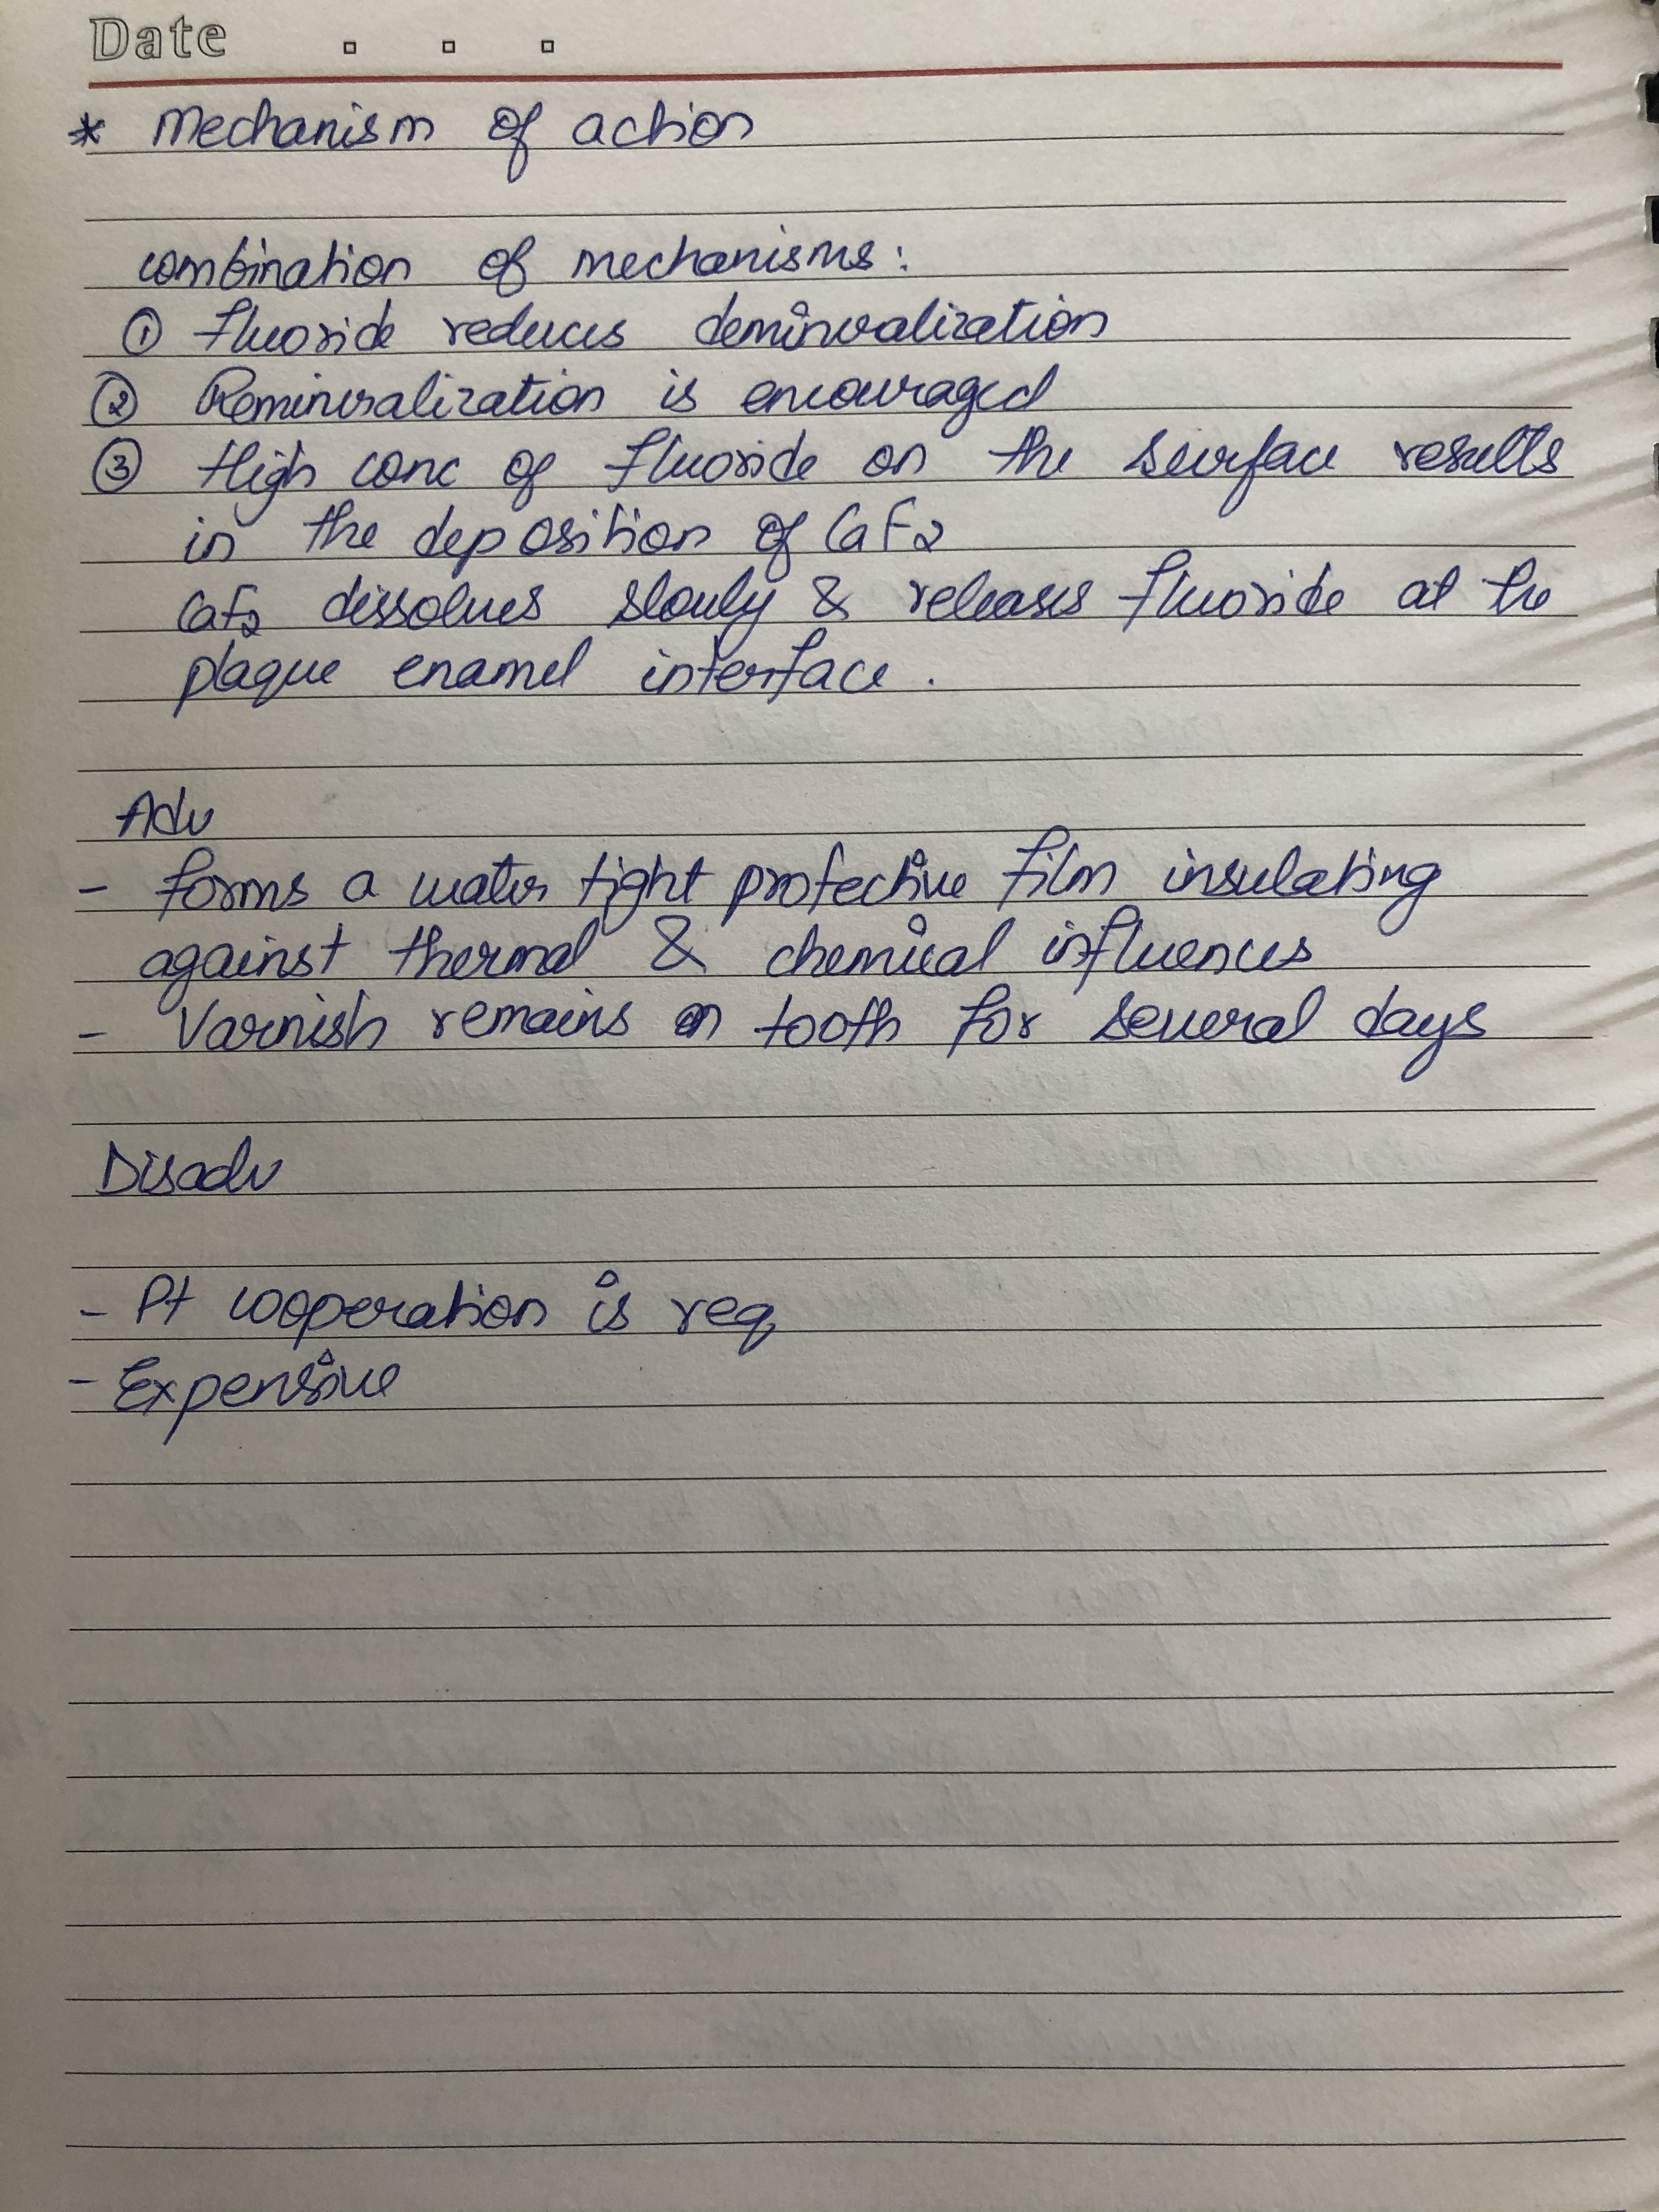 Date
* Mechanism of action
combination of mechanisms:
① Fluoride reduces demineralization
② Remineralization is encouraged
③ High conc of fluoride on the surface results
in the deposition of CaF2
CaF2 dissolves slowly & releases fluoride at the
plaque enamel interface.
Adv
- forms a water tight protective film insulating
against thermal & chemical influences
- Varnish remains on tooth for several days
Disadv
- Pt cooperation is req
- Expensive